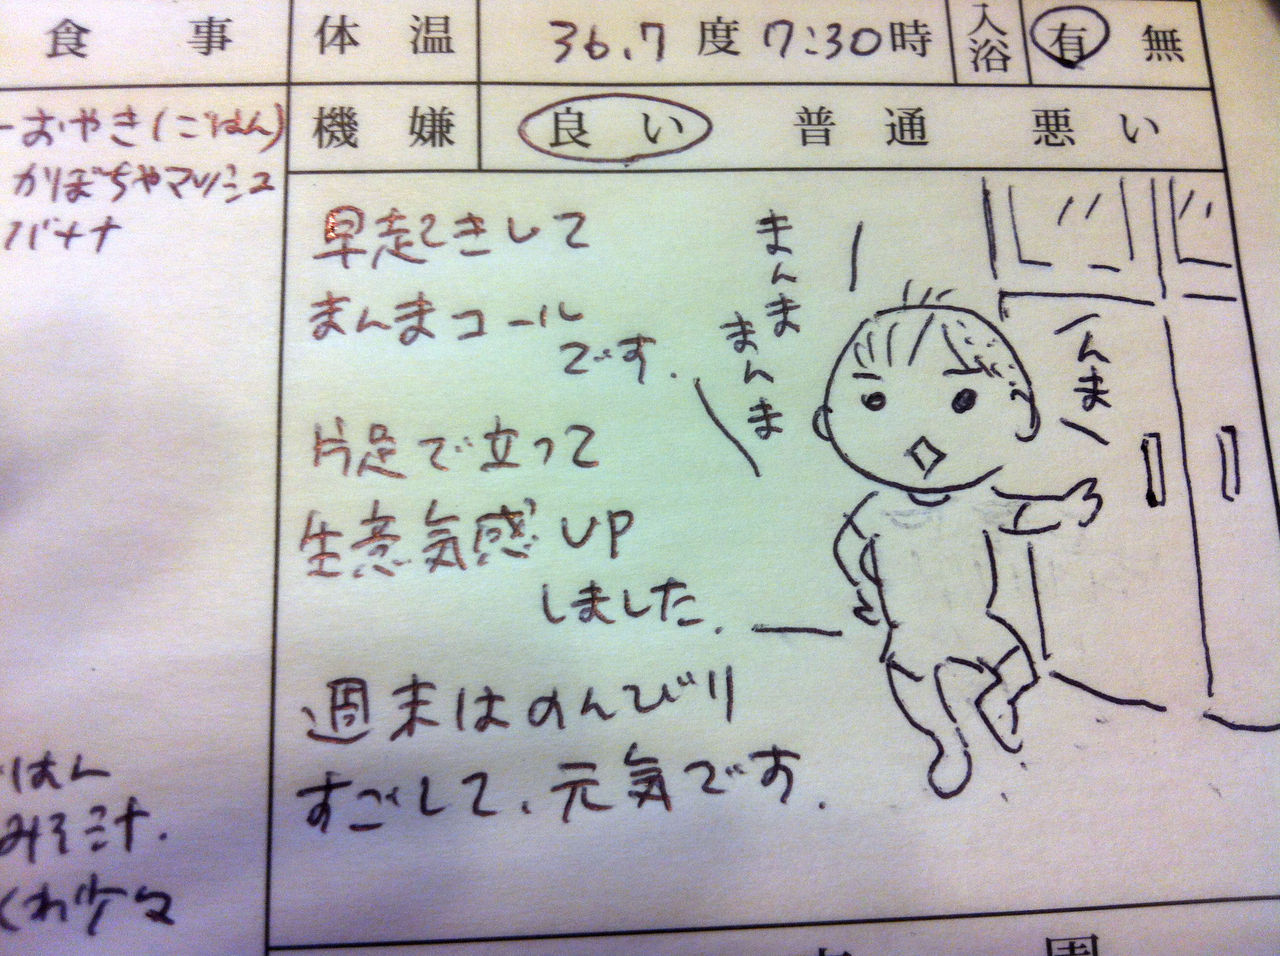 食事 体温 36.7度 7:30時 入浴 有 無
機嫌 良い 普通 悪い
おやき(ごはん)
かぼちゃマッシュ
バナナ
早起きして
まんまコール
です.
片足で立って
生意気感UP
しました.
週末はのんびり
すごして、元気です.
まんま
まんま
んま
はん
みそ汁.
少々
園